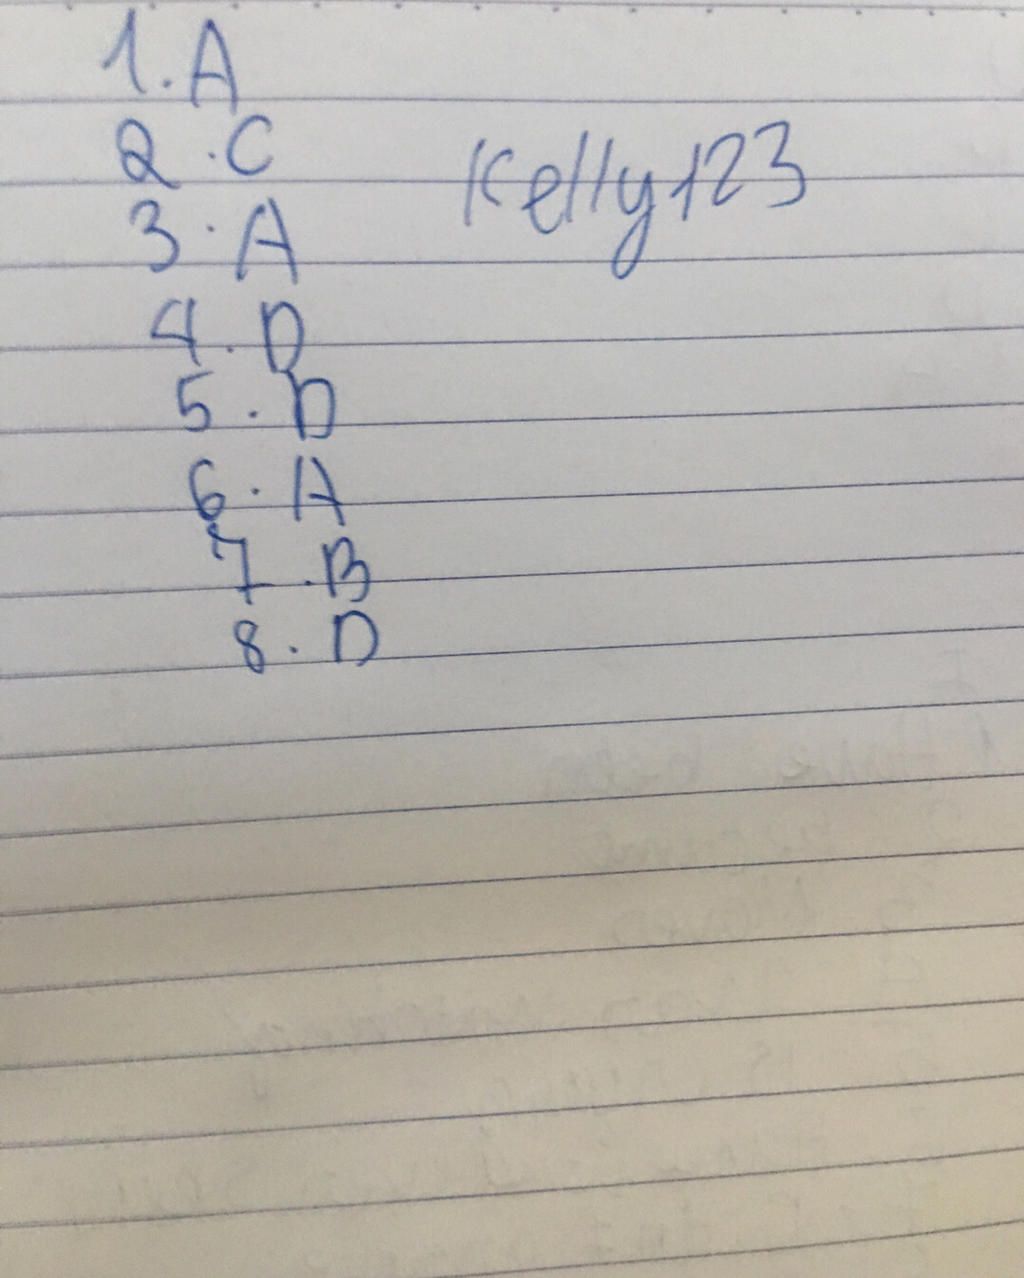 1. A
2. C
Kelly123
3. A
4. D
5. D
6. A
7. B
8. D